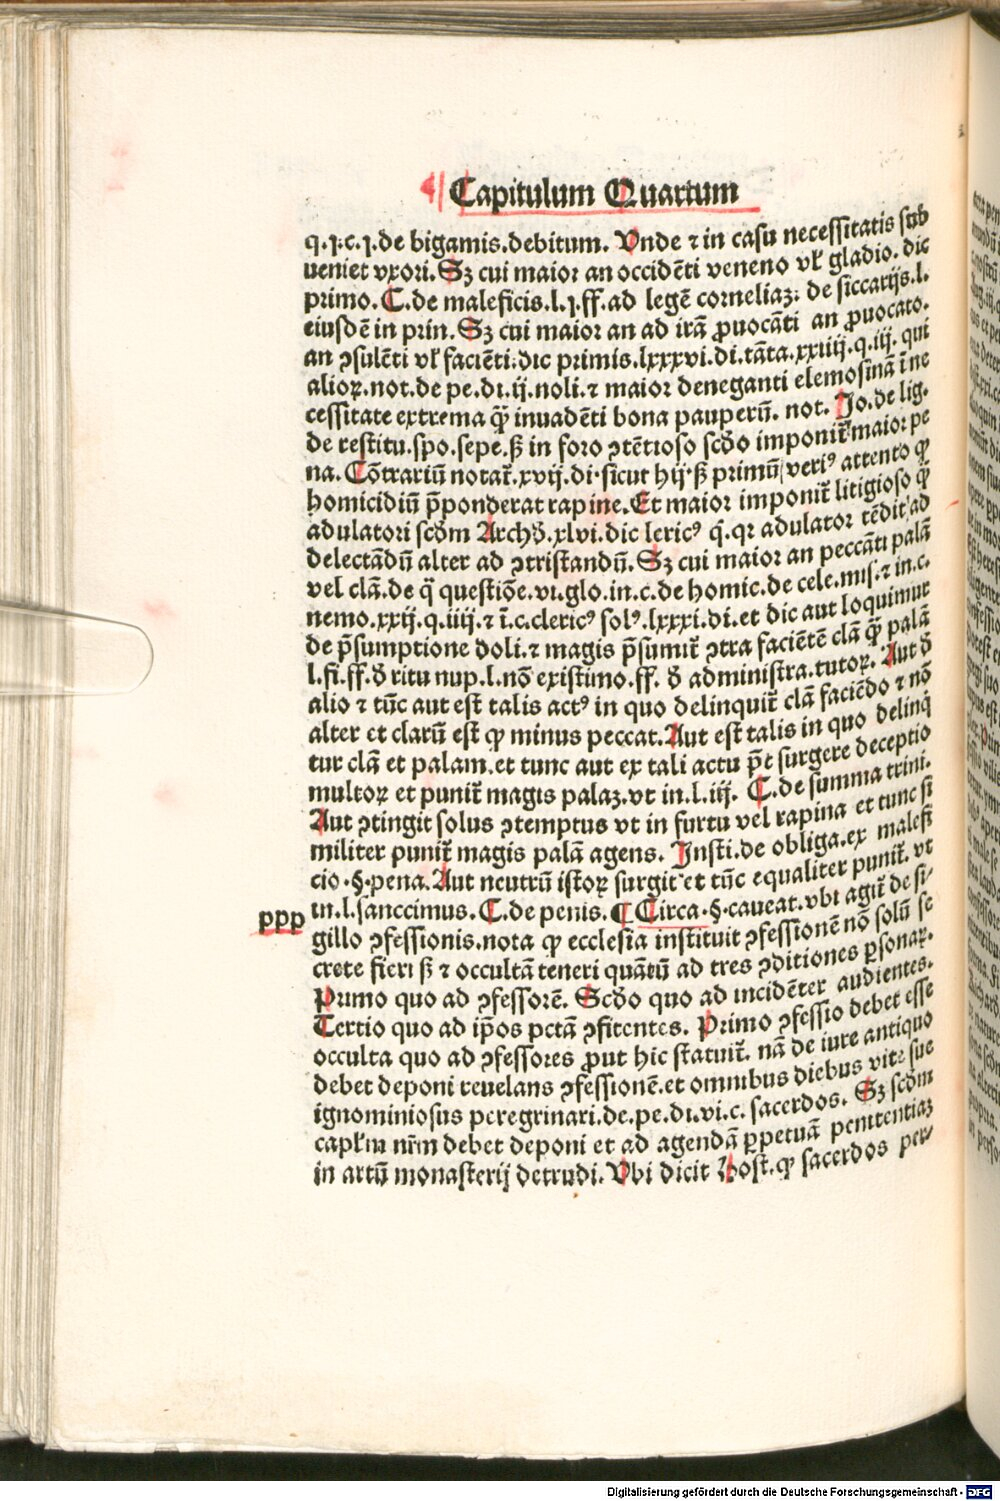 Capitulum Quartum
q.j.c.j.de bigamis.debitum. Vnde ⁊ in casu necessitatis sub
ueniet vxori. Sꝫ cui maior an occidēti veneno vł gladio. dic
primo. C. de maleficis.l.j.ff.ad legē corneliaꝫ: de siccarijs.l.
eiusdē in prin. Sꝫ cui maior an ad irā ꝓuocāti an ꝓuocato.
an ꝯsulēti vł faciēti:dic primis.lxxxvi.di.tāta.xxiiij.q.iij. qui
alioꝝ.not.de pe.di.ij.noli.⁊ maior deneganti elemosinā ī ne
cessitate extrema q̄ꝫ inuadēti bona pauperū. not. Jo.de lig.
de restitu.spo.sepe.ß in foro ꝯtētioso scđo imponit̄ maior pe
na. Cōtrariū notat̄.xvij.di.sicut hij.ß primū veriꝰ attento ꝙ
homicidiū p̄ponderat rapine. Et maior imponit̄ litigioso q̄ꝫ
adulatori scđm Archđ.xlvi.dic lericꝰ q̄.qr adulator tēdit ad
delectādū alter ad ꝯtristandū. Sꝫ cui maior an peccāti palā
vel clā.de q̄ questiōe.vi.glo.in.c.de homic.de cele.mis.⁊ in.c.
nemo.xxij.q.iiij.⁊ ī.c.clericꝰ solꝰ.lxxxi.di.et dic aut loquimur
de p̄sumptione doli.⁊ magis p̄sumit̄ ꝯtra faciētē clā q̄ꝫ palā
l.fi.ff.đ ritu nup.l.nō existimo.ff. đ administra.tutoꝝ. Aut đ
alio ⁊ tūc aut est talis actꝰ in quo delinquit̄ clā faciēdo ⁊ nō
alter et clarū est ꝙ minus peccat. Aut est talis in quo delinq̄
tur clā et palam.et tunc aut ex tali actu p̄t surgere deceptio
multoꝝ et punit̄ magis palaꝫ.vt in.l.iij. C.de summa trini.
Aut ꝯtingit solus ꝯtemptus vt in furtu vel rapina et tunc si
militer punit̄ magis palā agens. Insti.de obliga.ex malefi
cio.§.pena. Aut neutrū istoꝝ surgit et tūc equaliter punit̄. vt
in.l.sanccimus. C.de penis. ¶ Circa.§.caueat.vbi agit̄ de si/
ppp
gillo ꝯfessionis.nota ꝙ ecclesia instituit ꝯfessionē nō solū se
crete fieri ß ⁊ occultā teneri quātū ad tres ꝯditiones ꝑsonaꝝ.
Primo quo ad ꝯfessorē. Scđo quo ad incidēter audientes.
Tertio quo ad ip̄os pctā ꝯfitentes. Primo ꝯfessio debet esse
occulta quo ad ꝯfessores ꝓut hic statuit̄. nā de iure antiquo
debet deponi reuelans ꝯfessionē.et omnibus diebus vite sue
ignominiosus peregrinari.de.pe.di.vi.c. sacerdos. Sꝫ scđm
capłm nr̄m debet deponi et ad agendā ꝑpetuā penitentiaꝫ
in artū monasterij detrudi. Vbi dicit Host.ꝙ sacerdos per/
Digitalisierung gefördert durch die Deutsche Forschungsgemeinschaft - DFG